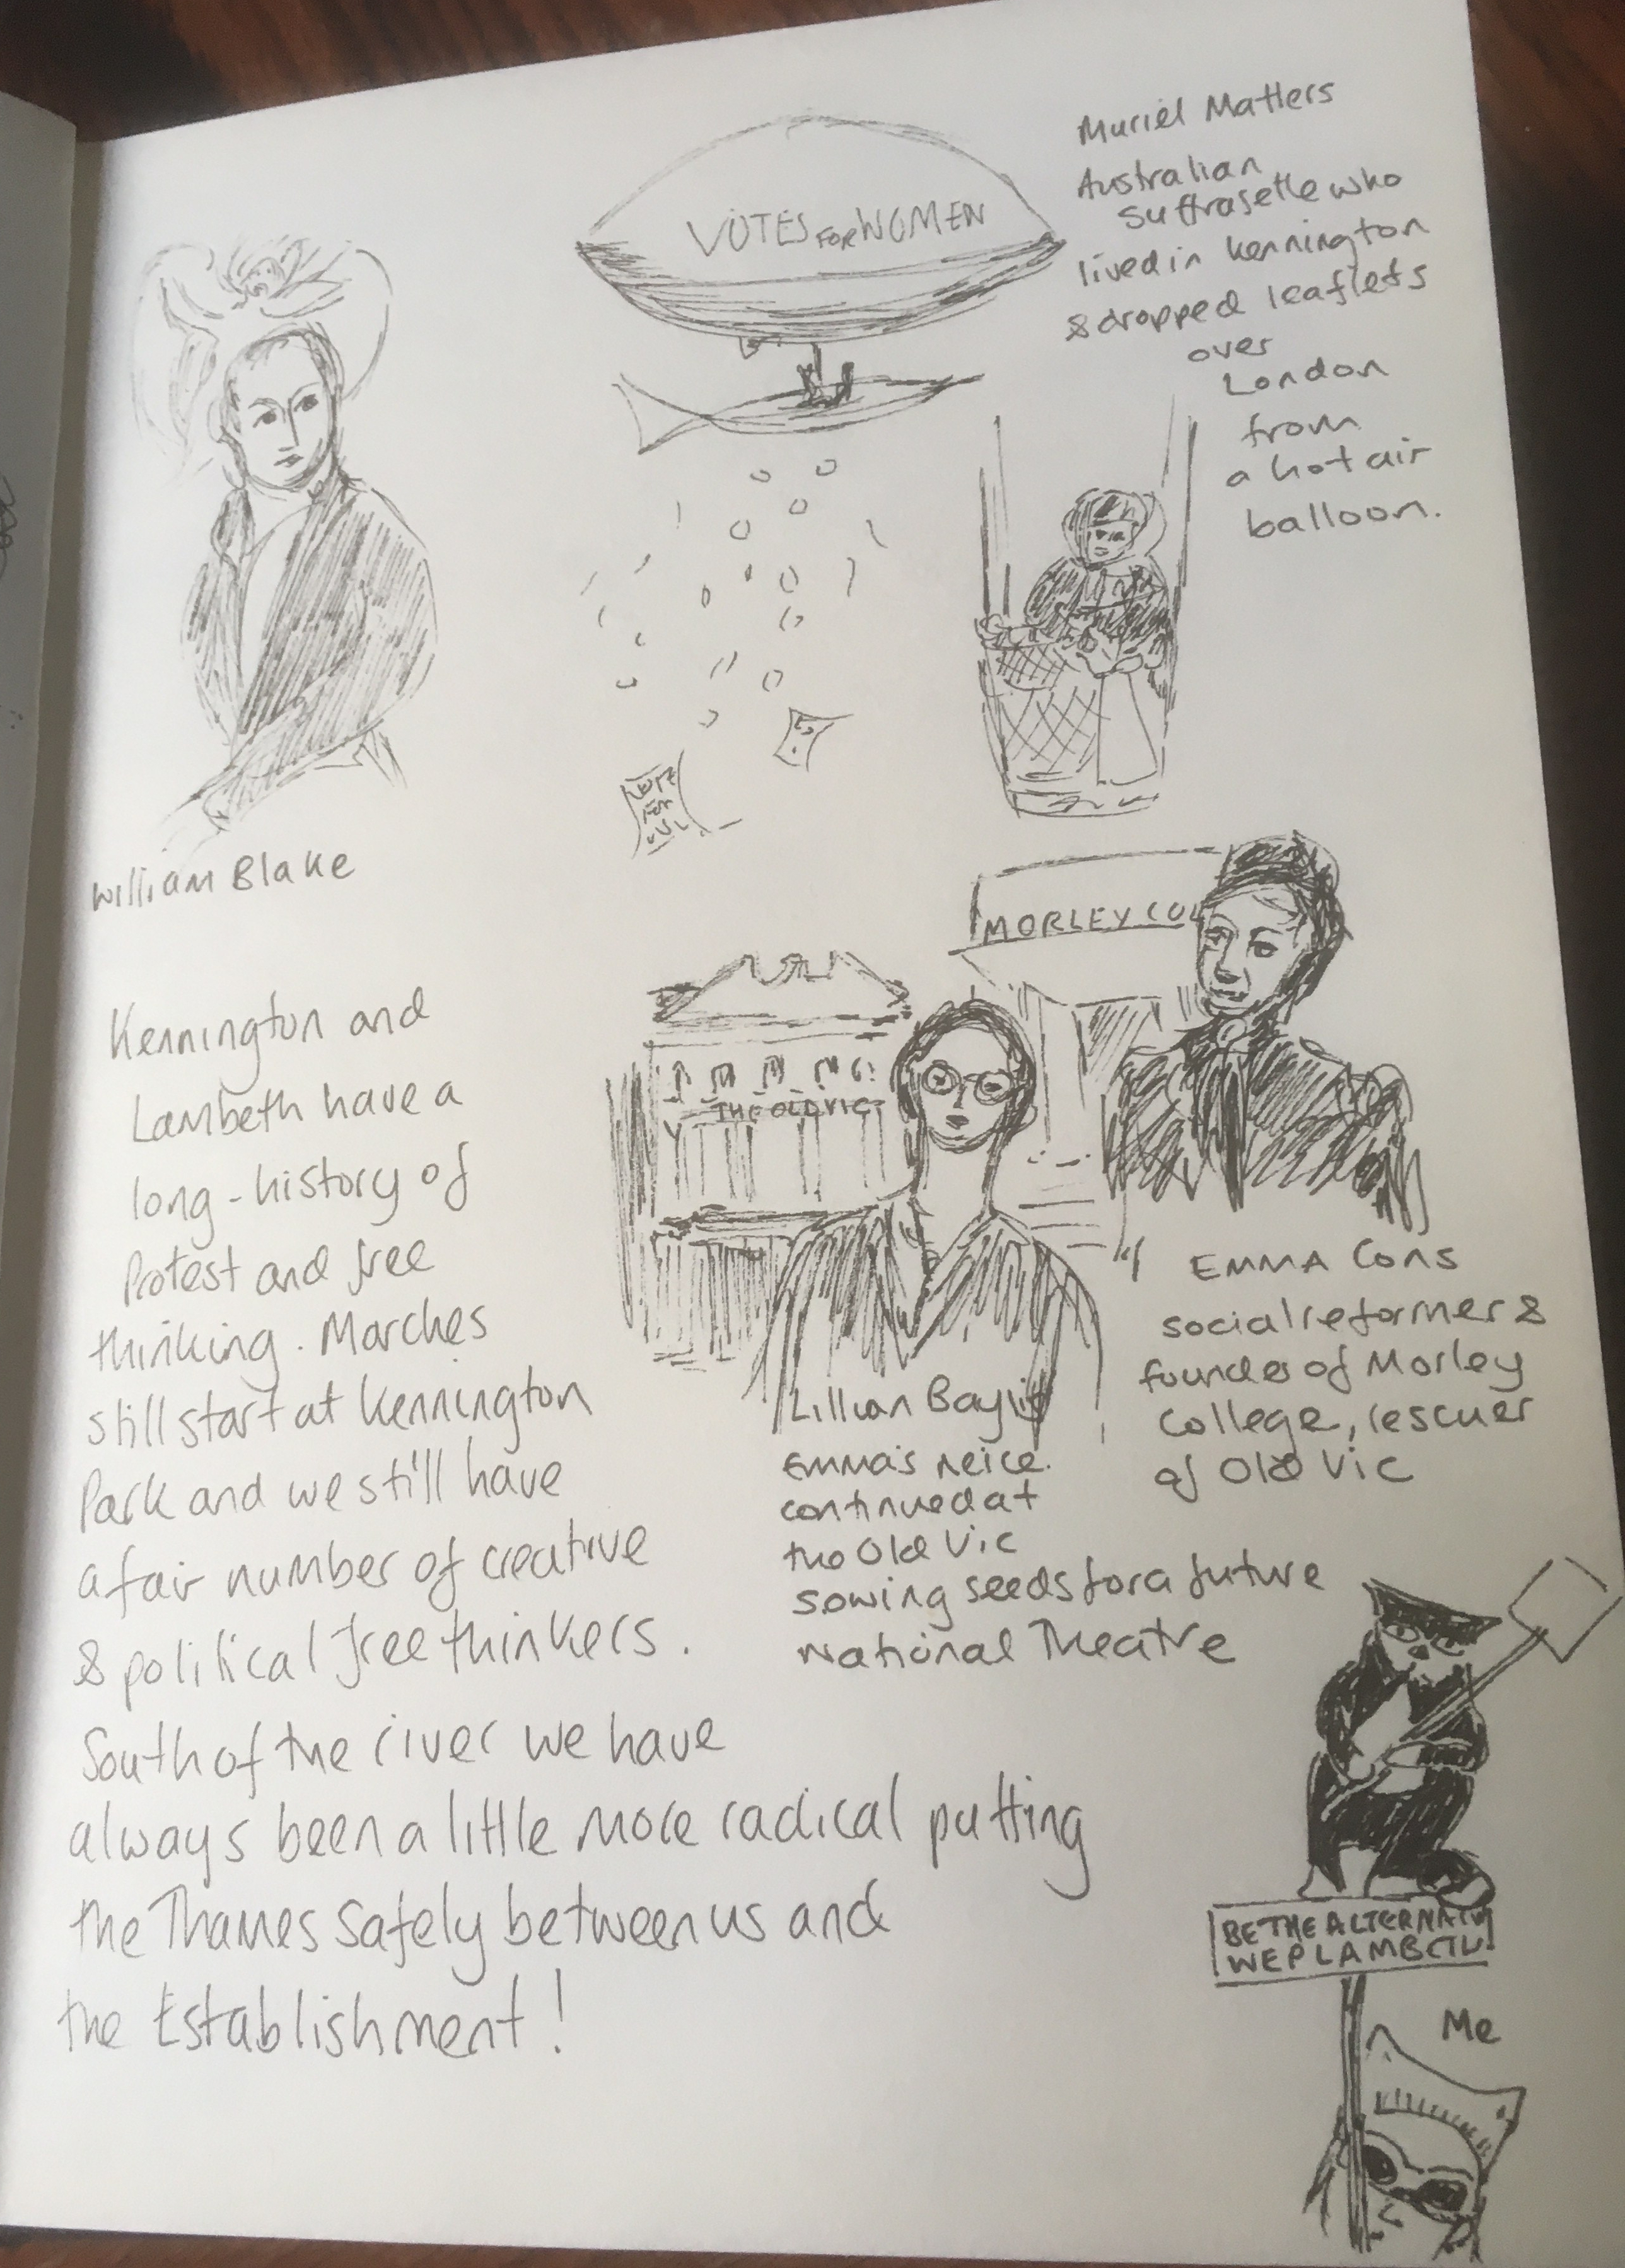 VOTES FOR WOMEN
Muriel Matters
Australian
Suffragette who
lived in Kennington
& dropped leaflets
over
London
from
a hot air
balloon.
William Blake
VOTE
FOR
MORLEY COL
THE OLD VIC
EMMA Cons
social reformer &
founder of Morley
College, rescuer
of Old Vic
Lillian Baylis
EMMA's neice.
continued at
the Old Vic
sowing seeds for a future
National Theatre
Kennington and
Lambeth have a
long-history of
Protest and free
thinking. Marches
still start at Kennington
Park and we still have
a fair number of creative
& political free thinkers.
South of the river we have
always been a little more radical putting
the Thames safely between us and
the Establishment!
BE THE ALTERNATIV
WEP LAMBETH
Me